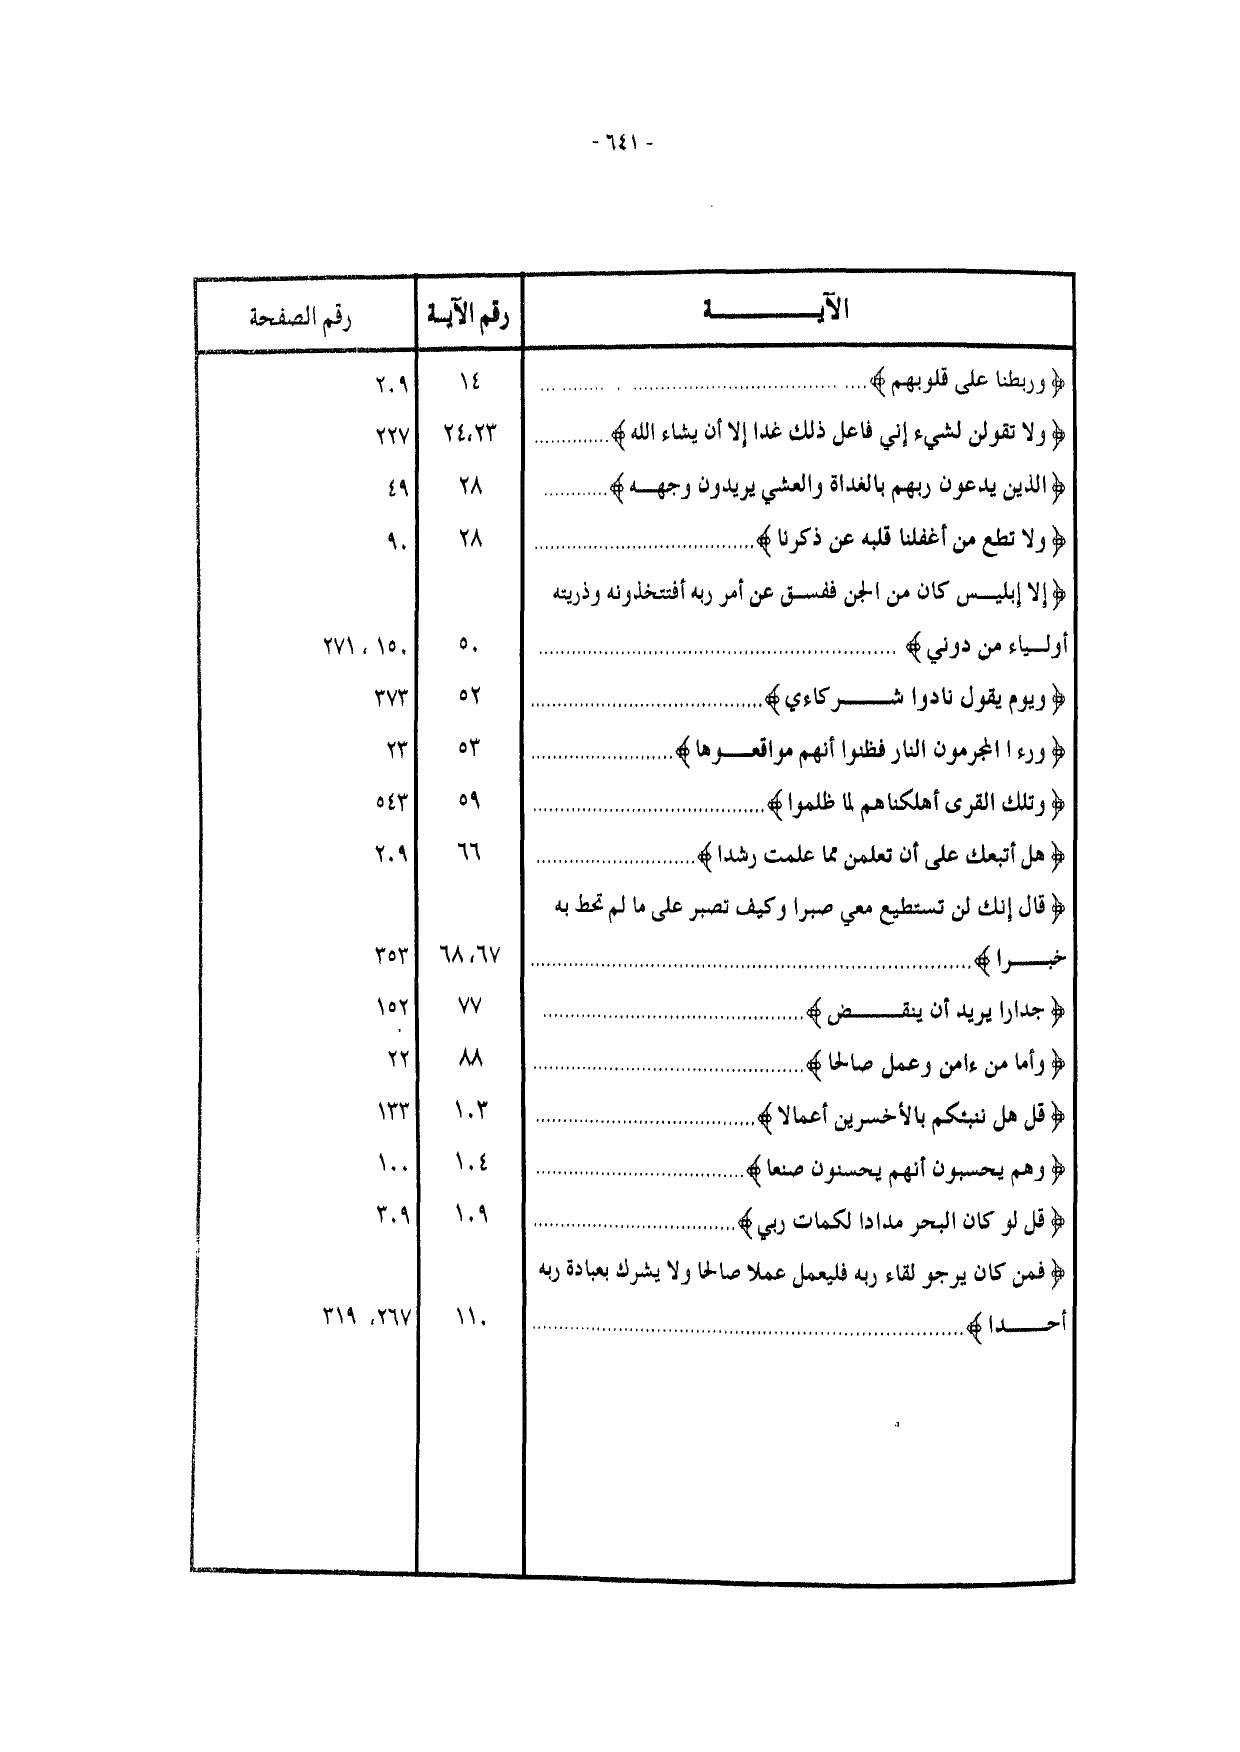 - ٦٤١ -
الآيــــــــــة رقم الآيــة رقم الصفحة
﴿ وربطنا على قلوبهم ﴾.... ................................... . ......... ... ١٤ ٢٠٩
﴿ ولا تقولن لشيء إني فاعل ذلك غدا إلا أن يشاء الله ﴾............. ٢٤،٢٣ ٢٢٧
﴿ الذين يدعون ربهم بالغداة والعشي يريدون وجهـــه ﴾........... ٢٨ ٤٩
﴿ ولا تطع من أغفلنا قلبه عن ذكرنا ﴾...................................... ٢٨ ٩٠
﴿ إلا إبليـــس كان من الجن ففســق عن أمر ربه أفتتخذونه وذريته
أولــياء من دوني ﴾ .............................................................. ٥٠ ١٥٠ ، ٢٧١
﴿ ويوم يقول نادوا شــــــركاءي ﴾........................................ ٥٢ ٣٧٣
﴿ ورءا المجرمون النار فظنوا أنهم مواقعـــوها ﴾......................... ٥٣ ٢٣
﴿ وتلك القرى أهلكناهم لما ظلموا ﴾........................................ ٥٩ ٥٤٣
﴿ هل أتبعك على أن تعلمن مما علمت رشدا ﴾............................ ٦٦ ٢٠٩
﴿ قال إنك لن تستطيع معي صبرا وكيف تصبر على ما لم تحط به
خبــــرا ﴾............................................................................ ٦٨،٦٧ ٣٥٣
﴿ جدارا يريد أن ينقـــــــض ﴾............................................. ٧٧ ١٥٢
﴿ وأما من ءامن وعمل صالحا ﴾............................................... ٨٨ ٢٢
﴿ قل هل ننبئكم بالأخسرين أعمالا ﴾...................................... ١٠٣ ١٣٣
﴿ وهم يحسبون أنهم يحسنون صنعا ﴾.................................... ١٠٤ ١٠٠
﴿ قل لو كان البحر مدادا لكمات ربي ﴾................................... ١٠٩ ٣٠٩
﴿ فمن كان يرجو لقاء ربه فليعمل عملا صالحا ولا يشرك بعبادة ربه
أحـــــدا ﴾.......................................................................... ١١٠ ٢٦٧، ٣١٩